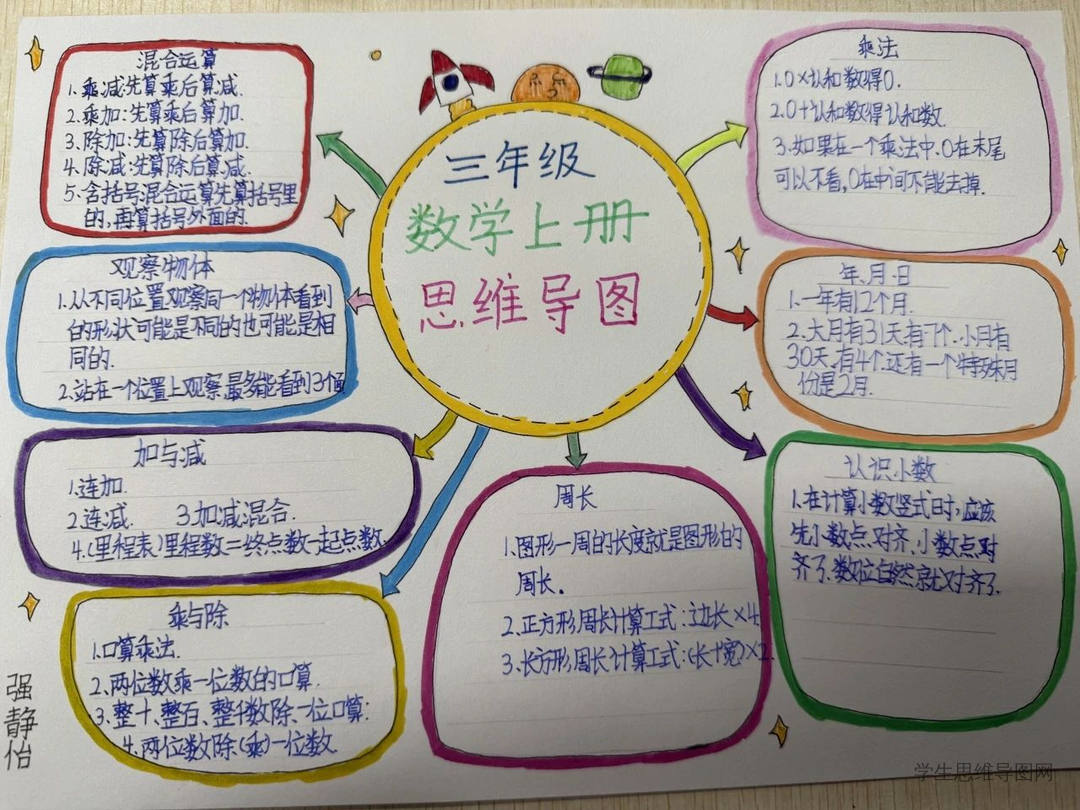 三年级
数学上册
思维导图
混合运算
1.乘减:先算乘后算减.
2.乘加:先算乘后算加.
3.除加:先算除后算加.
4.除减:先算除后算减.
5.含括号混合运算先算括号里
的,再算括号外面的.
观察物体
1.从不同位置观察同一个物体看到
的形状可能是不同的也可能是相
同的.
2.站在一个位置上观察,最多能看到3个面
加与减
1.连加.
2.连减. 3.加减混合.
4.(里程表)里程数=终点数-起点数.
乘与除
1.口算乘法.
2.两位数乘一位数的口算.
3.整十、整百、整千数除一位口算:
4.两位数除(乘)一位数.
周长
1.图形一周的长度就是图形的
周长。
2.正方形周长计算工式:边长×4
3.长方形周长计算工式:(长+宽)×2.
乘法
1.0×认和数得0.
2.0+认和数得认和数.
3.如果在一个乘法中.0在末尾
可以不看,0在中间不能去掉.
年.月.日
1.一年有12个月.
2.大月有31天有7个.小月有
30天.有4个.还有一个特殊月
份是2月.
认识小数
1.在计算小数竖式时,应该
先小数点对齐.小数点对
齐了.数位自然就对齐了.
强静怡
学生思维导图网